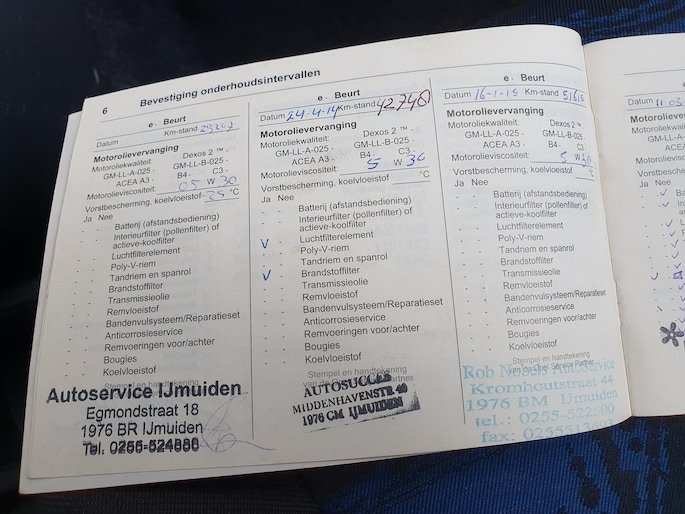 6
Bevestiging onderhoudsintervallen
e - Beurt
Datum Km-stand
Motorolievervanging
Motoroliekwaliteit: Dexos 2 ™ -
GM-LL-A-025 - GM-LL-B-025 -
ACEA A3 - B4 - C3 -
Motorolieviscositeit: 05 W 30
Vorstbescherming, koelvloeistof -25 °C
Ja Nee
Batterij (afstandsbediening)
Interieurfilter (pollenfilter) of
actieve-koolfilter
Luchtfilterelement
Poly-V-riem
Tandriem en spanrol
Brandstoffilter
Transmissieolie
Remvloeistof
Bandenvulsysteem/Reparatieset
Anticorrosieservice
Remvoeringen voor/achter
Bougies
Koelvloeistof
Stempel en handtekening
Autoservice IJmuiden
Egmondstraat 18
1976 BR IJmuiden
Tel. 0255-524886
e - Beurt
Datum 24-4-14 Km-stand 42740
Motorolievervanging
Motoroliekwaliteit: Dexos 2 ™ -
GM-LL-A-025 - GM-LL-B-025 -
ACEA A3 - B4 - C3 -
Motorolieviscositeit: 5 W 30
Vorstbescherming, koelvloeistof °C
Ja Nee
Batterij (afstandsbediening)
Interieurfilter (pollenfilter) of
actieve-koolfilter
Luchtfilterelement
Poly-V-riem
Tandriem en spanrol
Brandstoffilter
Transmissieolie
Remvloeistof
Bandenvulsysteem/Reparatieset
Anticorrosieservice
Remvoeringen voor/achter
Bougies
Koelvloeistof
Stempel en handtekening
van de Partner
AUTOSUCCES
MIDDENHAVENSTR 40
1976 CM IJMUIDEN
e - Beurt
Datum 16-1-15 Km-stand 51615
Motorolievervanging
Motoroliekwaliteit: Dexos 2 ™ -
GM-LL-A-025 - GM-LL-B-025 -
ACEA A3 - B4 - C3 -
Motorolieviscositeit: 5 W
Vorstbescherming, koelvloeistof °C
Ja Nee
Batterij (afstandsbediening)
Interieurfilter (pollenfilter) of
actieve-koolfilter
Luchtfilterelement
Poly-V-riem
Tandriem en spanrol
Brandstoffilter
Transmissieolie
Remvloeistof
Bandenvulsysteem/Reparatieset
Anticorrosieservice
Remvoeringen voor/achter
Bougies
Koelvloeistof
Stempel en handtekening
van de Opel Service Partner
Rob Autoservice
Kromhoutstraat 44
1976 BM IJmuiden
tel.: 0255-522500
fax:
e -
Datum
Motorolievervanging
Motoroliekwaliteit:
GM-LL-A-025 -
ACEA A3 -
Motorolieviscositeit:
Vorstbescherming,
Ja Nee